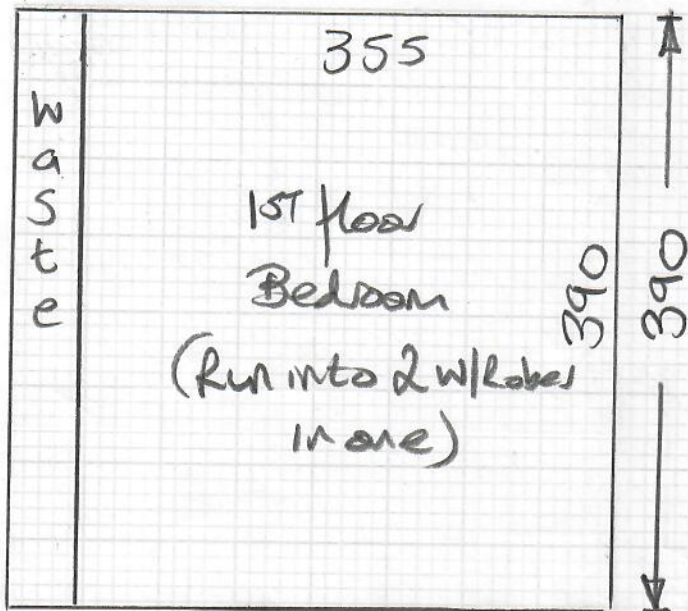 355
Waste
1st floor
Bedroom
(Run into 2 W/Robes
in one)
390
390